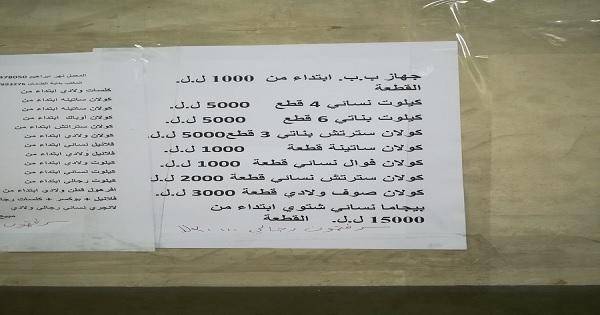 جهاز ب.ب. ابتداء من 1000 ل.ل.
القطعة
كيلوت نسائي 4 قطع 5000 ل.ل.
كيلوت بناتي 6 قطع 5000 ل.ل.
كولان سترتش بناتي 3 قطع5000 ل.ل.
كولان ساتينة قطعة 1000 ل.ل.
كولان فوال نسائي قطعة 1000 ل.ل.
كولان سترتش نسائي قطعة 2000 ل.ل.
كولان صوف ولادي قطعة 3000 ل.ل.
بيجاما نسائي شتوي ابتداء من
15000 ل.ل. القطعة
رجالي
المحل نهر ابراهيم 378050
كلسات ولادي ابتداء من
كولان ساتينه ابتداء من
كولان ساتينه ابتداء من
كولان أوباك ابتداء من
كولان سترتش ابتداء من
كولان ولادي ابتداء من
فلانيل نسائي ابتداء من
فلانيل ولادي ابتداء من
كيلوت ولادي ابتداء من
كيلوت نسائي ابتداء من
كيلوت رجالي ابتداء من
افرهول قطن ولادي ابتداء من
فلانيل + بوكسر + كلسات رجا
لانجري نسائي رجالي ولادي